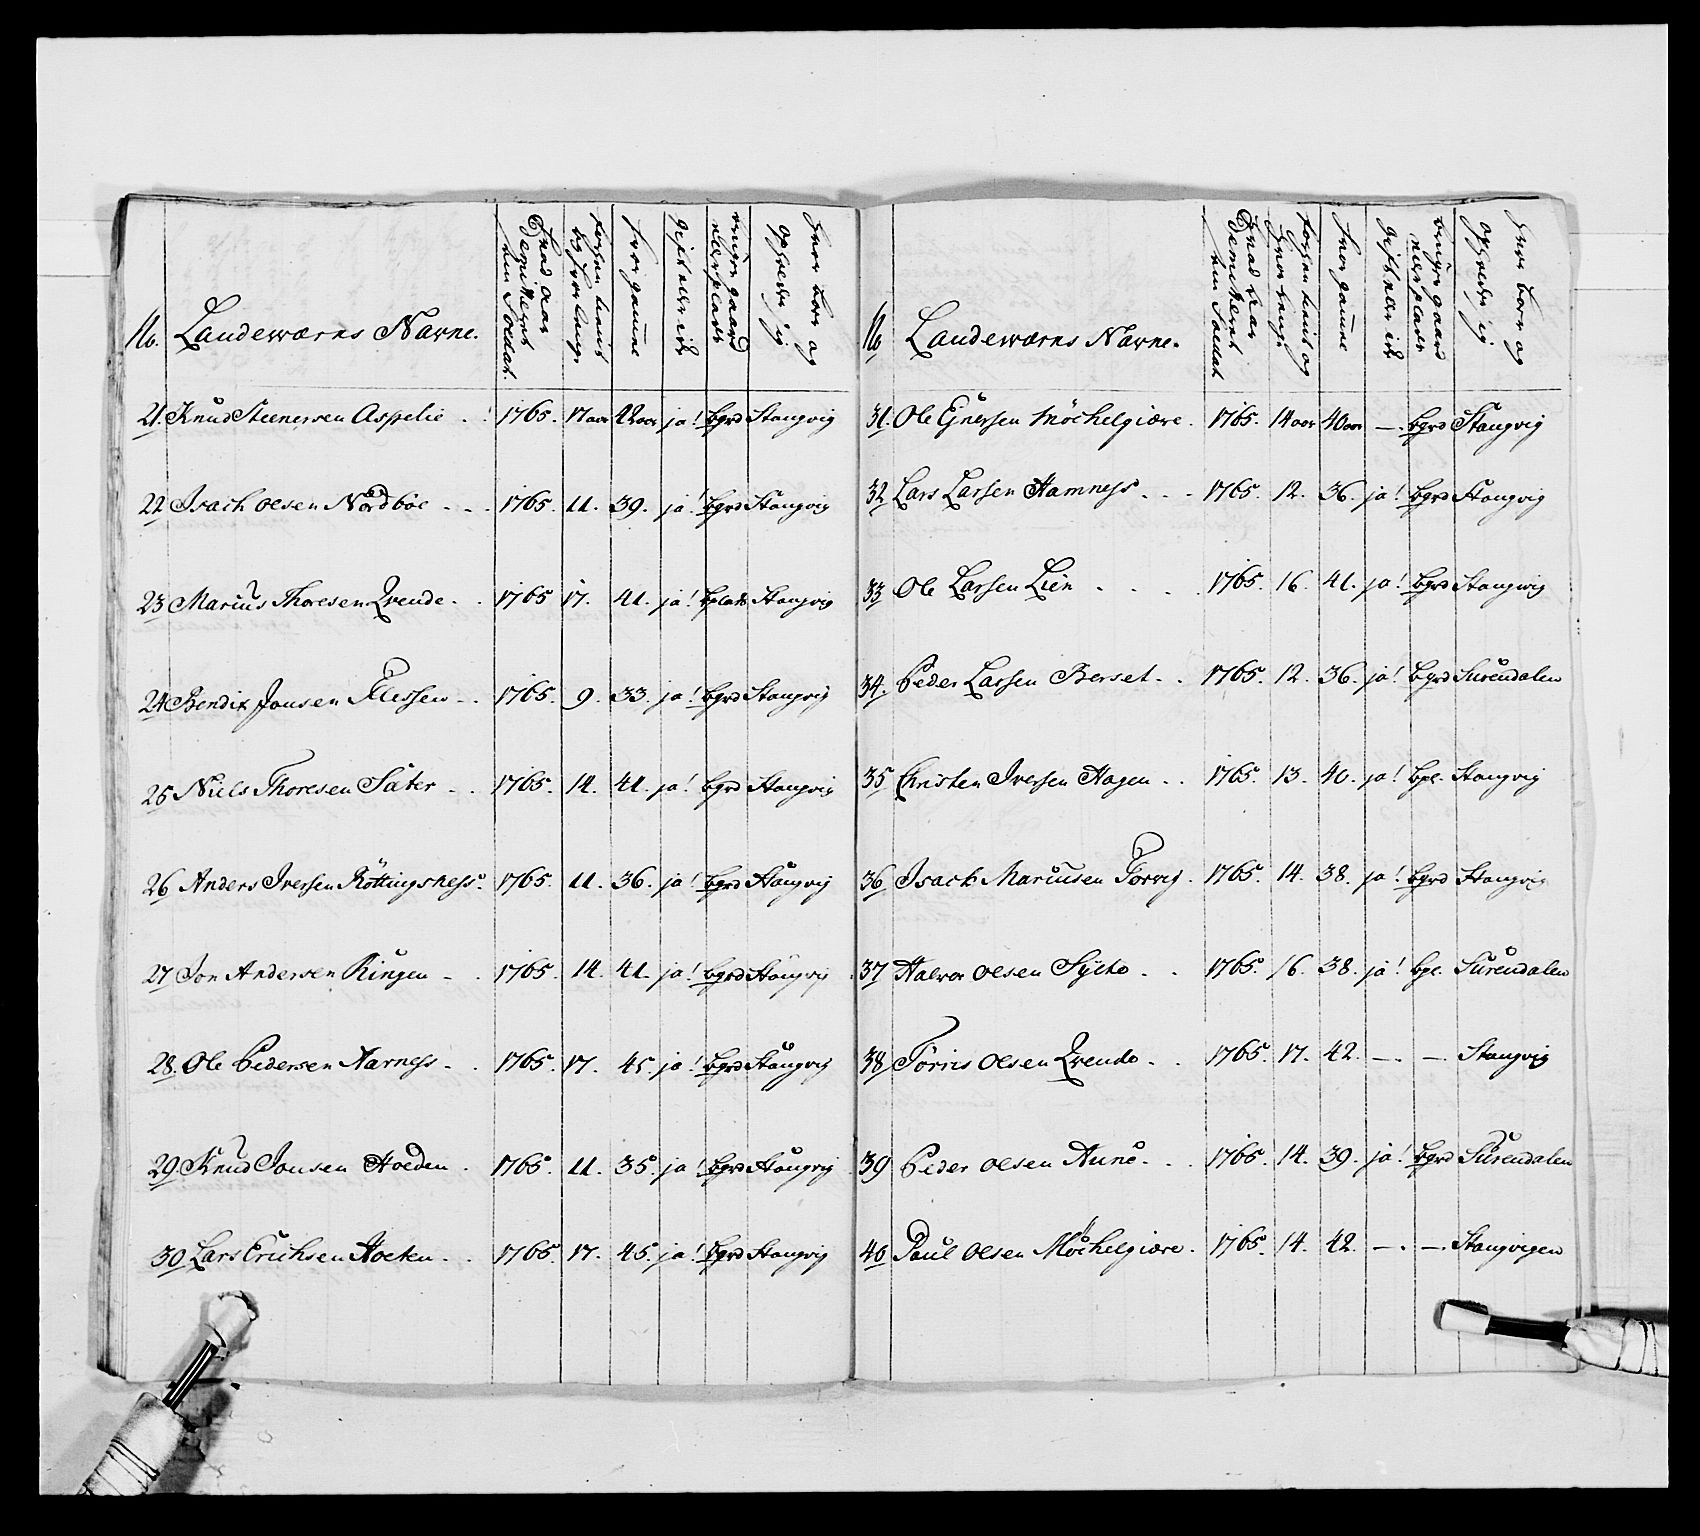 No. Landeværns Navne. Hvad Aar Demitteret som Soldat. forhen tient og hvor lenge hvor gamme gift eller ick bruger gaard eller plads hvor boer og opholder sig
21. Knud Steenersen Aspelie . . 1765. 17 aar 42 aar ja! bgrd Stangvig
22 Isach Olsen Nordbøe - - . 1765. 11. 39. ja! bgrd Stangvig
23 Marius Thoresen Qvende - . 1765 17. 41. ja! bplads Stangvig
24 Bendix Jonsen 1765. 9. 33. ja! bgrd Stangvig
25 Niels Thoresen Säter - . 1765. 14. 41. ja! bgrd Stangvig
26 Anders Iversen Röttingsness. 1765. 11. 36. ja! bgrd Stangvig
27 Jon Andersen Ringen - . 1765. 14. 41. ja! bgrd Stangvig
28. Ole Pedersen Narness - . 1765. 17. 45. ja! bgrd Stangvig
29 Knud Jonsen Holden . 1765. 11. 35. ja! bgrd Stangvig
30 Lars Erichsen 1765. 17. 45. ja! bgrd Stangvig
No Landeværns Navne. Hvad Aar Demitteret som Soldat forhen tient og hvor lenge hvor gamme gift eller ick bruger gaard eller plads hvor boer og opholder sig
31. Ole Ejnersen Möchelgiære . 1765. 14 aar 40 aar —. bgrd Stangvig
32 Lars Larsen Hamness . - - 1765. 12. 36. ja! bgrd Stangvig
33 Ole Larsen Lien . . . . 1765. 16. 41. ja! bgrd Stangvig
34. Peder Larsen Berset - . 1765. 12. 36. ja! bgrd Surendalen
35 Christen Iversen Hagen - . 1765. 13. 40. ja! bpl. Stangvig
36 Isach Mariusen Torvig . 1765. 14. 38. ja! bgrd Stangvig
37 Halvor Olsen 1765. 16. 38. ja! bpl. Surendalen
38 Törris Olsen Qvende - . 1765. 17. 42. —. —. Stangvig
39 Peder Olsen Aune - . . 1765. 14. 39. ja! bgrd Surendalen
40 Paul Olsen Möchelgiære . 1765. 14. 42. —. —. Stangvigen